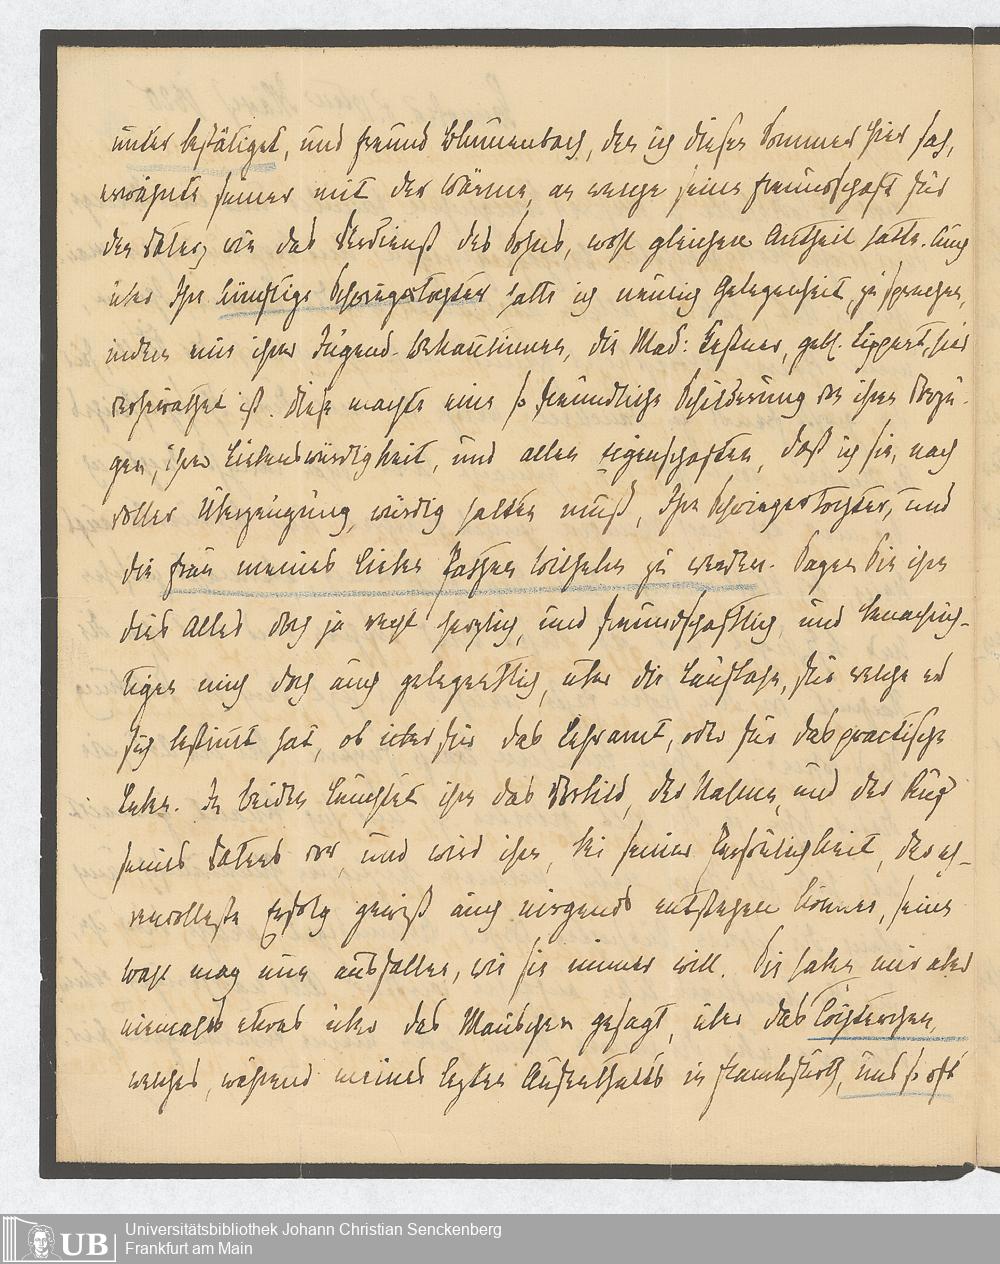 unter bestätiget, und Freund Blumenbach, den ich diesen Sommer hier sah,
erwähnte seiner mit der Wärme, an welche seine Freundschaft für
den Vater, wie das Verdienst des Sohns, wohl gleichen Antheil hatte. Auch
über Ihre künftige Schwiegertochter hatte ich neulich Gelegenheit, zu sprechen,
indem eine ihrer Jugend-Bekantinnen, die Mad: Geßner, geb. Lippert, hier
verheirathet ist. Diese machte eine so freundliche Schilderung von ihren Vorzü-
gen, ihrer Liebenswürdigkeit, und allen Eigenschaften, daß ich sie, nach
voller Überzeugung, würdig halten muß, Ihre Schwiegertochter, und
die Frau meines lieben Pathen Wilhelm zu werden. Sagen Sie ihm
dies Alles doch ja recht herzlich, und freundschaftlich, und benachrich-
tigen mich doch auch gelegentlich, über die Laufbahn, für welche er
sich bestimt hat, ob für das Lehramt, oder für das practische
Leben. In beiden leuchtet ihm das Vorbild, der Nahme, und der Ruf
seines Vaters vor, und wird ihm, bei seiner Persönlichkeit, der eh-
renvolleste Erfolg gewiß auch nirgends entstehen können, seine
Wahl mag nun ausfallen, wie sie immer will. Sie haben mir aber
niemahls etwas über das gesagt, über das Töchterchen,
welches, während meines lezten Aufenthalts in Frankfurth, uns so oft
Universitätsbibliothek Johann Christian Senckenberg
UB
Frankfurt am Main